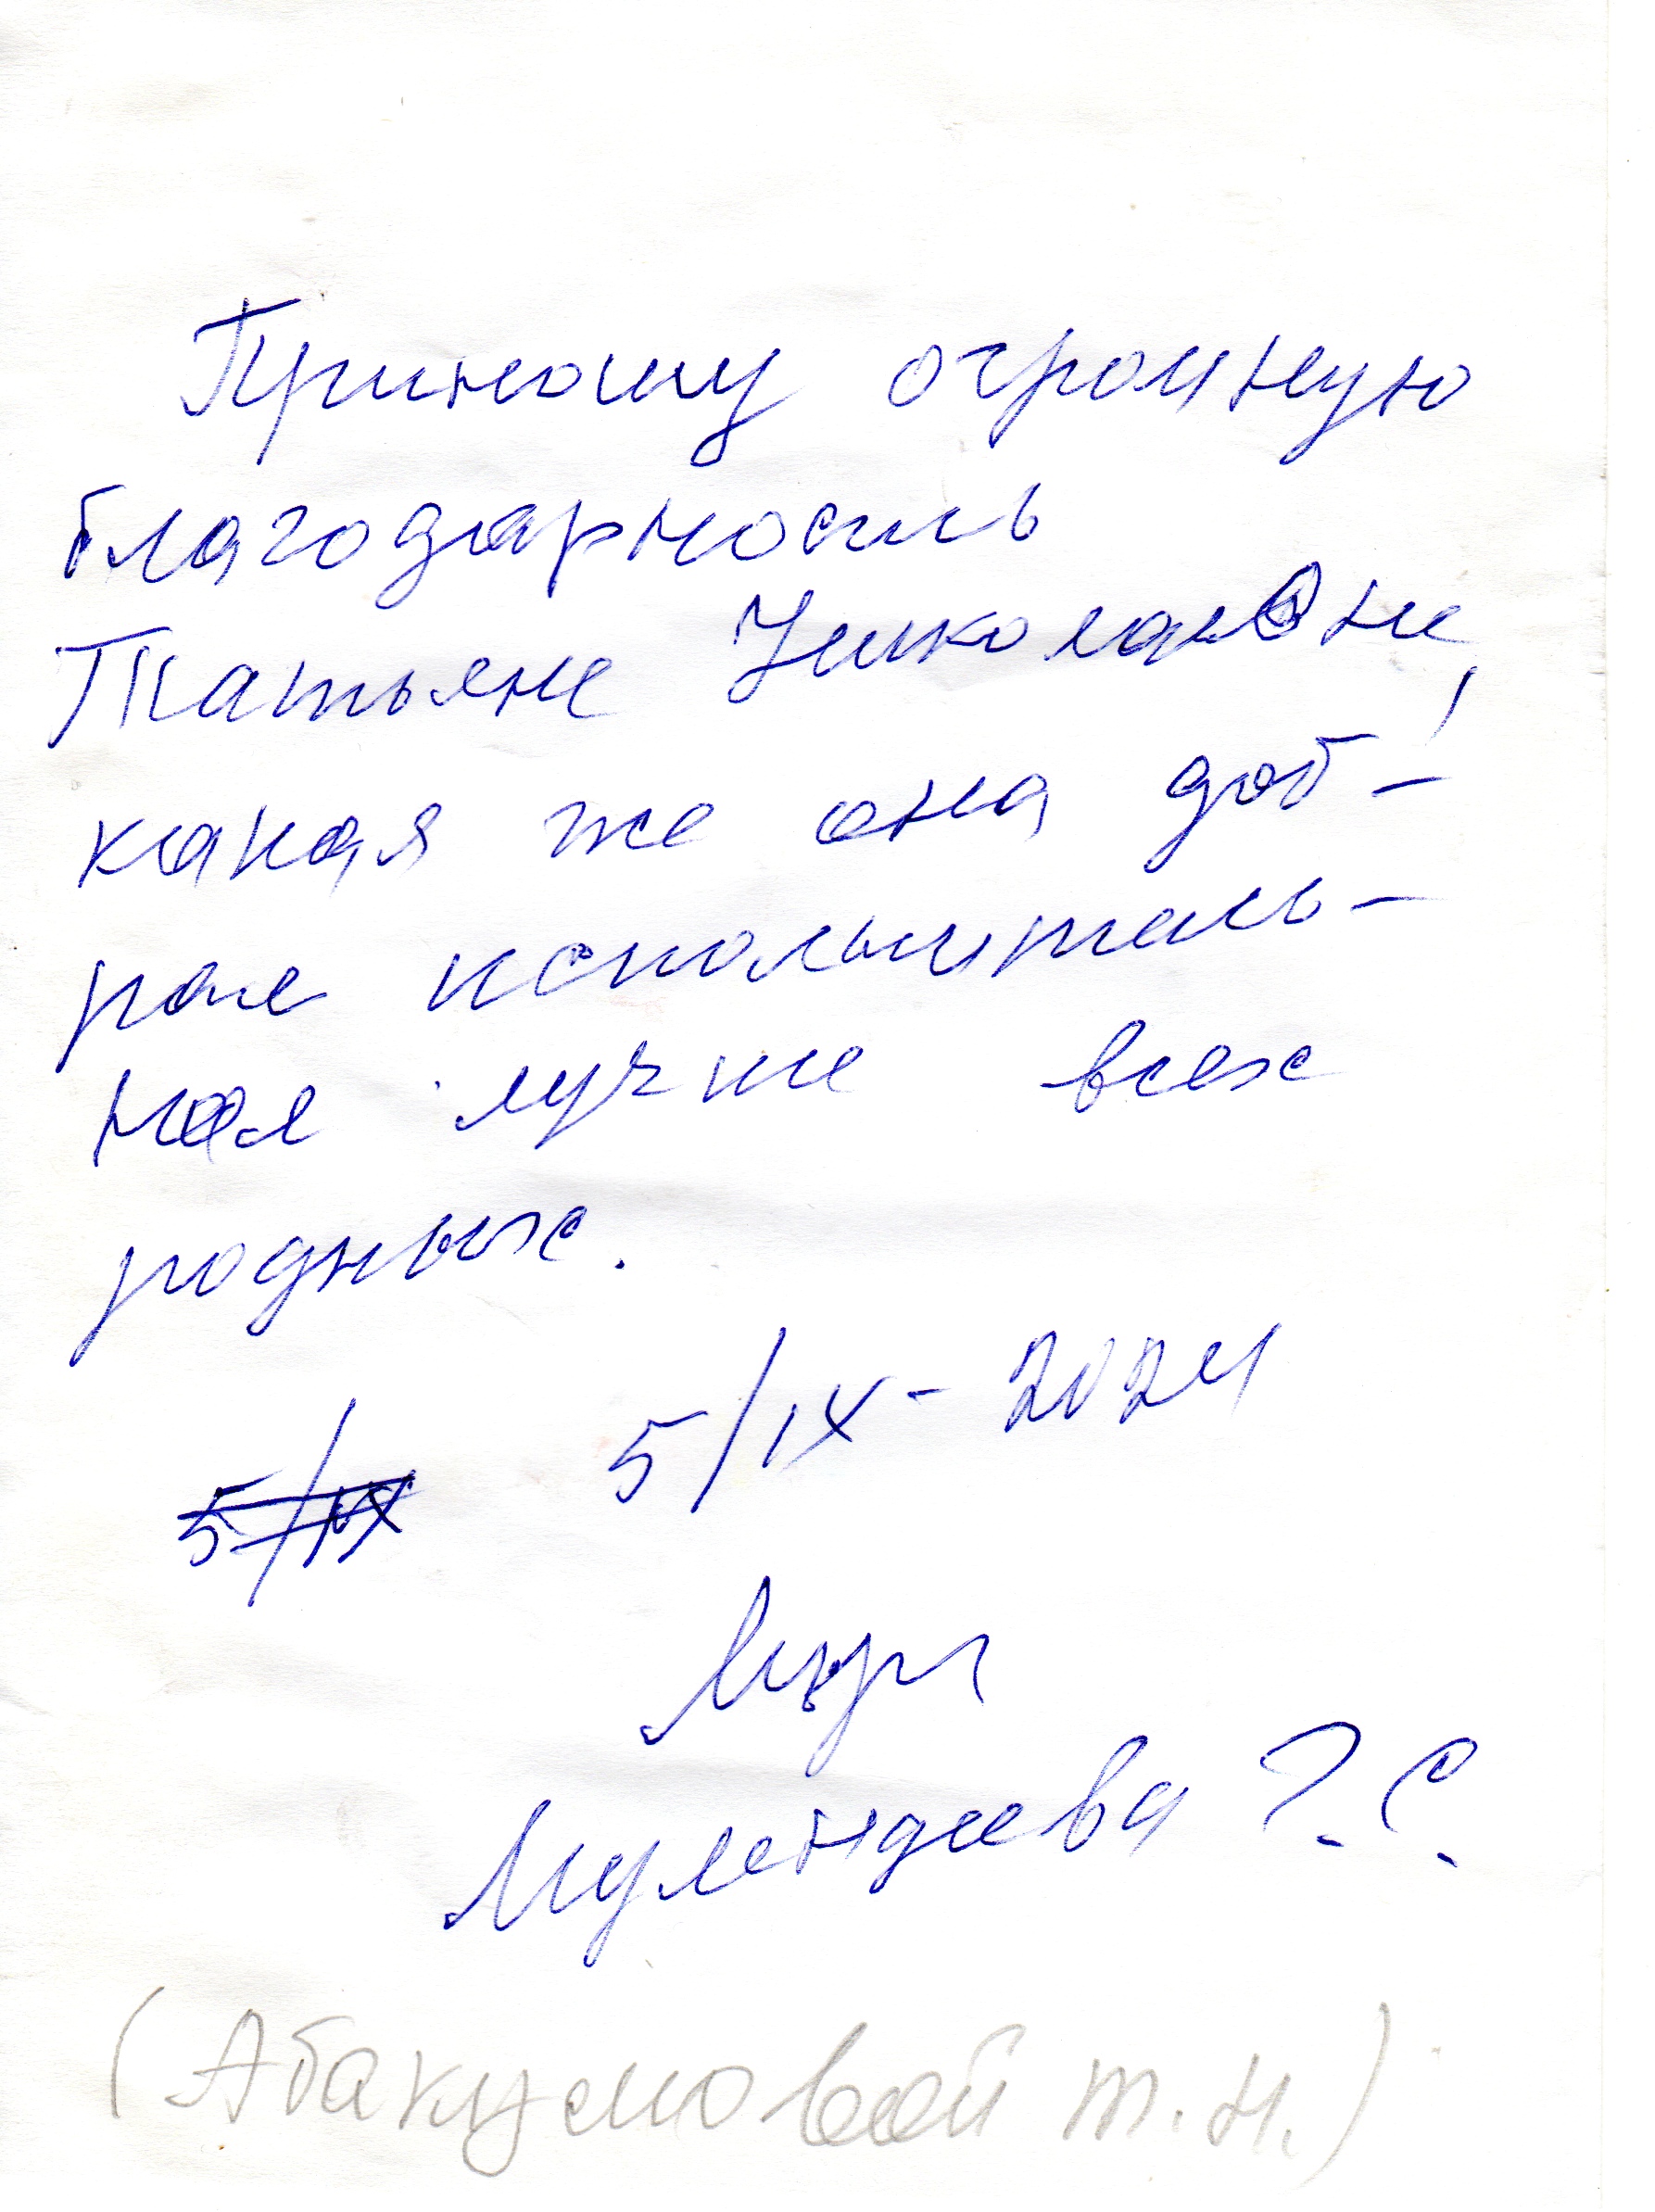 Приношу огромную
благодарность
Татьяне Николаевне,
какая же она доб-
рая исполнитель-
ная лучше всех
родных.
5/IX 5/IX - 2024
Мулендеева Г. С.
(Абакумовой Т. Н.)